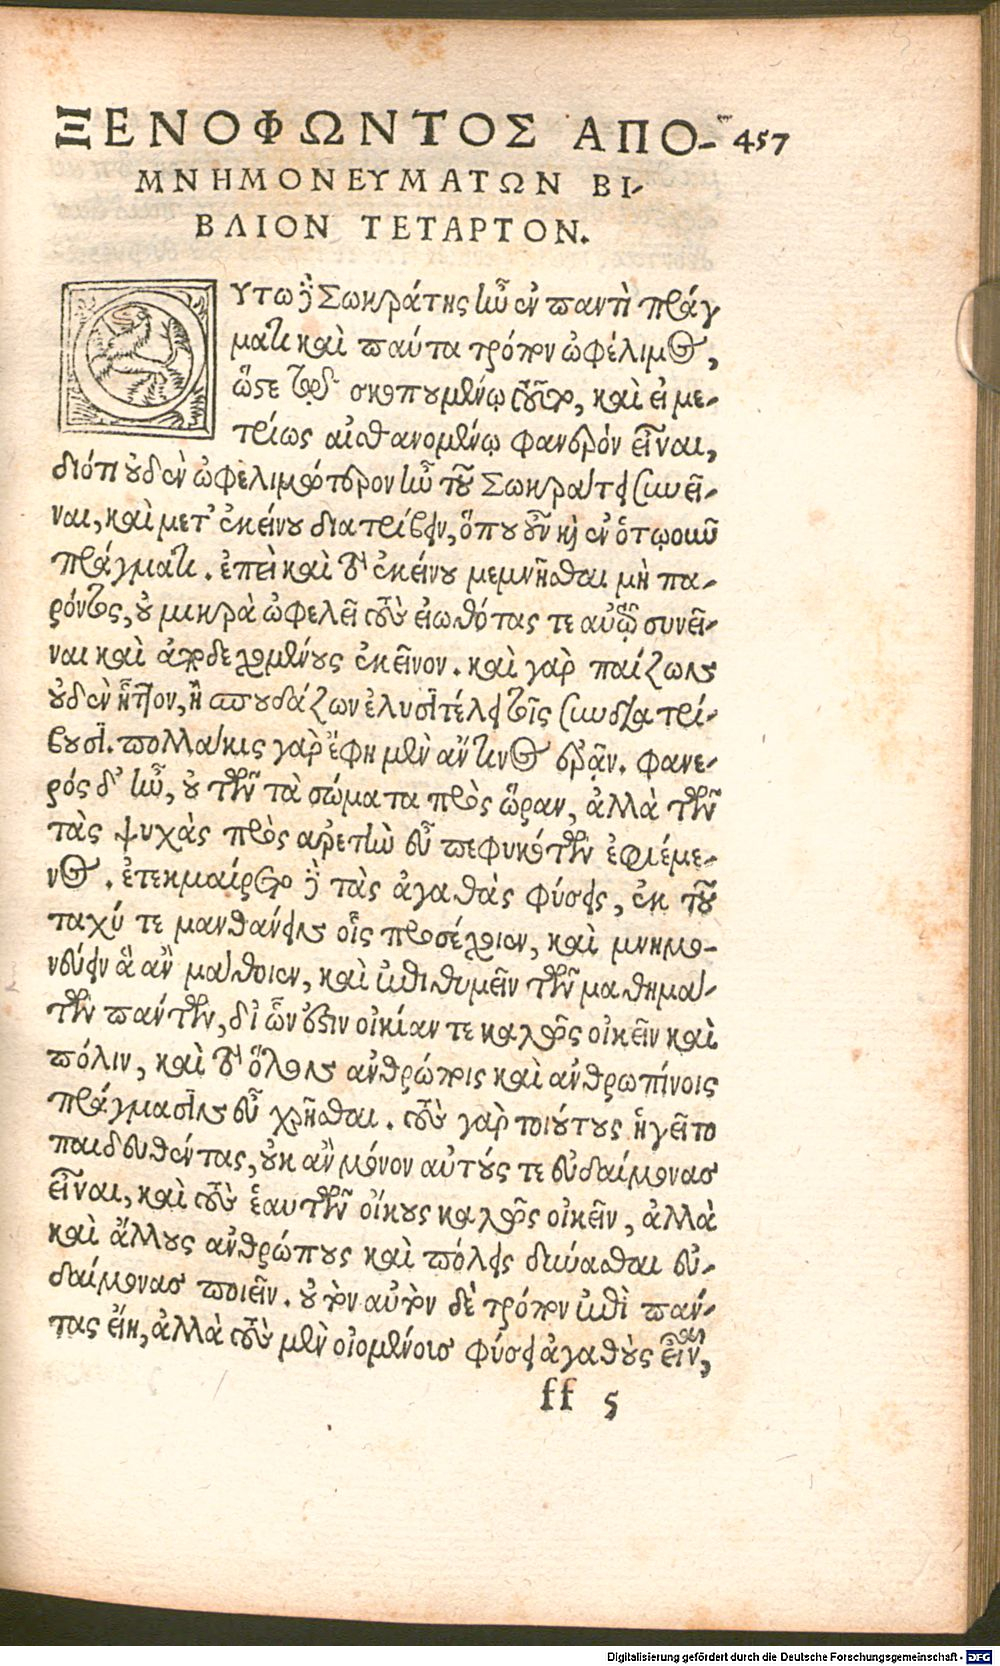 ΞΕΝΟΦΩΝΤΟΣ ΑΠΟ- 457
ΜΝΗΜΟΝΕΥΜΑΤΩΝ ΒΙ-
ΒΛΙΟΝ ΤΕΤΑΡΤΟΝ.
ΟΥΤΩ δὲ Σωκράτης ἦν ἐν παντὶ πράγ
ματι καὶ πάντα τρόπον ὠφέλιμος,
ὥστε τῷ σκοπουμένῳ τοῦτο, καὶ εἰ με-
τρίως αἰσθανομένῳ φανερὸν εἶναι,
διότι οὐδὲν ὠφελιμώτερον ἦν τοῦ Σωκράτει συνεῖ-
ναι, καὶ μετ' ἐκείνου διατρίβειν, ὅπου οὖν καὶ ἐν ὁτῳοιῦν
πράγματι. ἐπεὶ καὶ τὸ ἐκείνου μεμνῆσθαι μὴ πα-
ρόντος, οὐ μικρὰ ὠφελεῖ τοὺς εἰωθότας τε αὐτῷ συνεῖ-
ναι καὶ ἀποδεχομένους ἐκεῖνον. καὶ γὰρ παίζων
οὐδὲν ἧττον, ἢ σπουδάζων ἐλυσιτέλει τοῖς συνδιατρί-
βουσι. πολλάκις γὰρ ἔφη μὲν ἄν τινος ἐρᾷν. φανε-
ρὸς δ' ἦν, οὐ τῶν τὰ σώματα πρὸς ὥραν, ἀλλὰ τῶν
τὰς ψυχὰς πρὸς ἀρετὴν εὖ πεφυκότων ἐφιέμε-
νος. ἐτεκμαίρετο δὲ τὰς ἀγαθὰς φύσεις, ἐκ τοῦ
ταχύ τε μανθάνειν οἷς προσέχοιεν, καὶ μνημο-
νεύειν ἃ ἂν μάθοιεν, καὶ ἐπιθυμεῖν τῶν μαθημά-
των πάντων, δι' ὧν ἔστιν οἰκίαν τε καλῶς οἰκεῖν καὶ
πόλιν, καὶ τὸ ὅλον ἀνθρώποις καὶ ἀνθρωπίνοις
πράγμασιν εὖ χρῆσθαι. τοὺς γὰρ τοιούτους ἡγεῖτο
παιδευθέντας, οὐκ ἂν μόνον αὐτούς τε εὐδαίμονας
εἶναι, καὶ τοὺς ἑαυτῶν οἴκους καλῶς οἰκεῖν, ἀλλὰ
καὶ ἄλλους ἀνθρώπους καὶ πόλεις δύνασθαι εὐ-
δαίμονας ποιεῖν. οὐ τὸν αὐτὸν δὲ τρόπον ἐπὶ πάν-
τας ἔιη, ἀλλὰ τοὺς μὲν οἰομένοις φύσει ἀγαθοὺς εἶναι,
ff 5
Digitalisierung gefördert durch die Deutsche Forschungsgemeinschaft - DFG